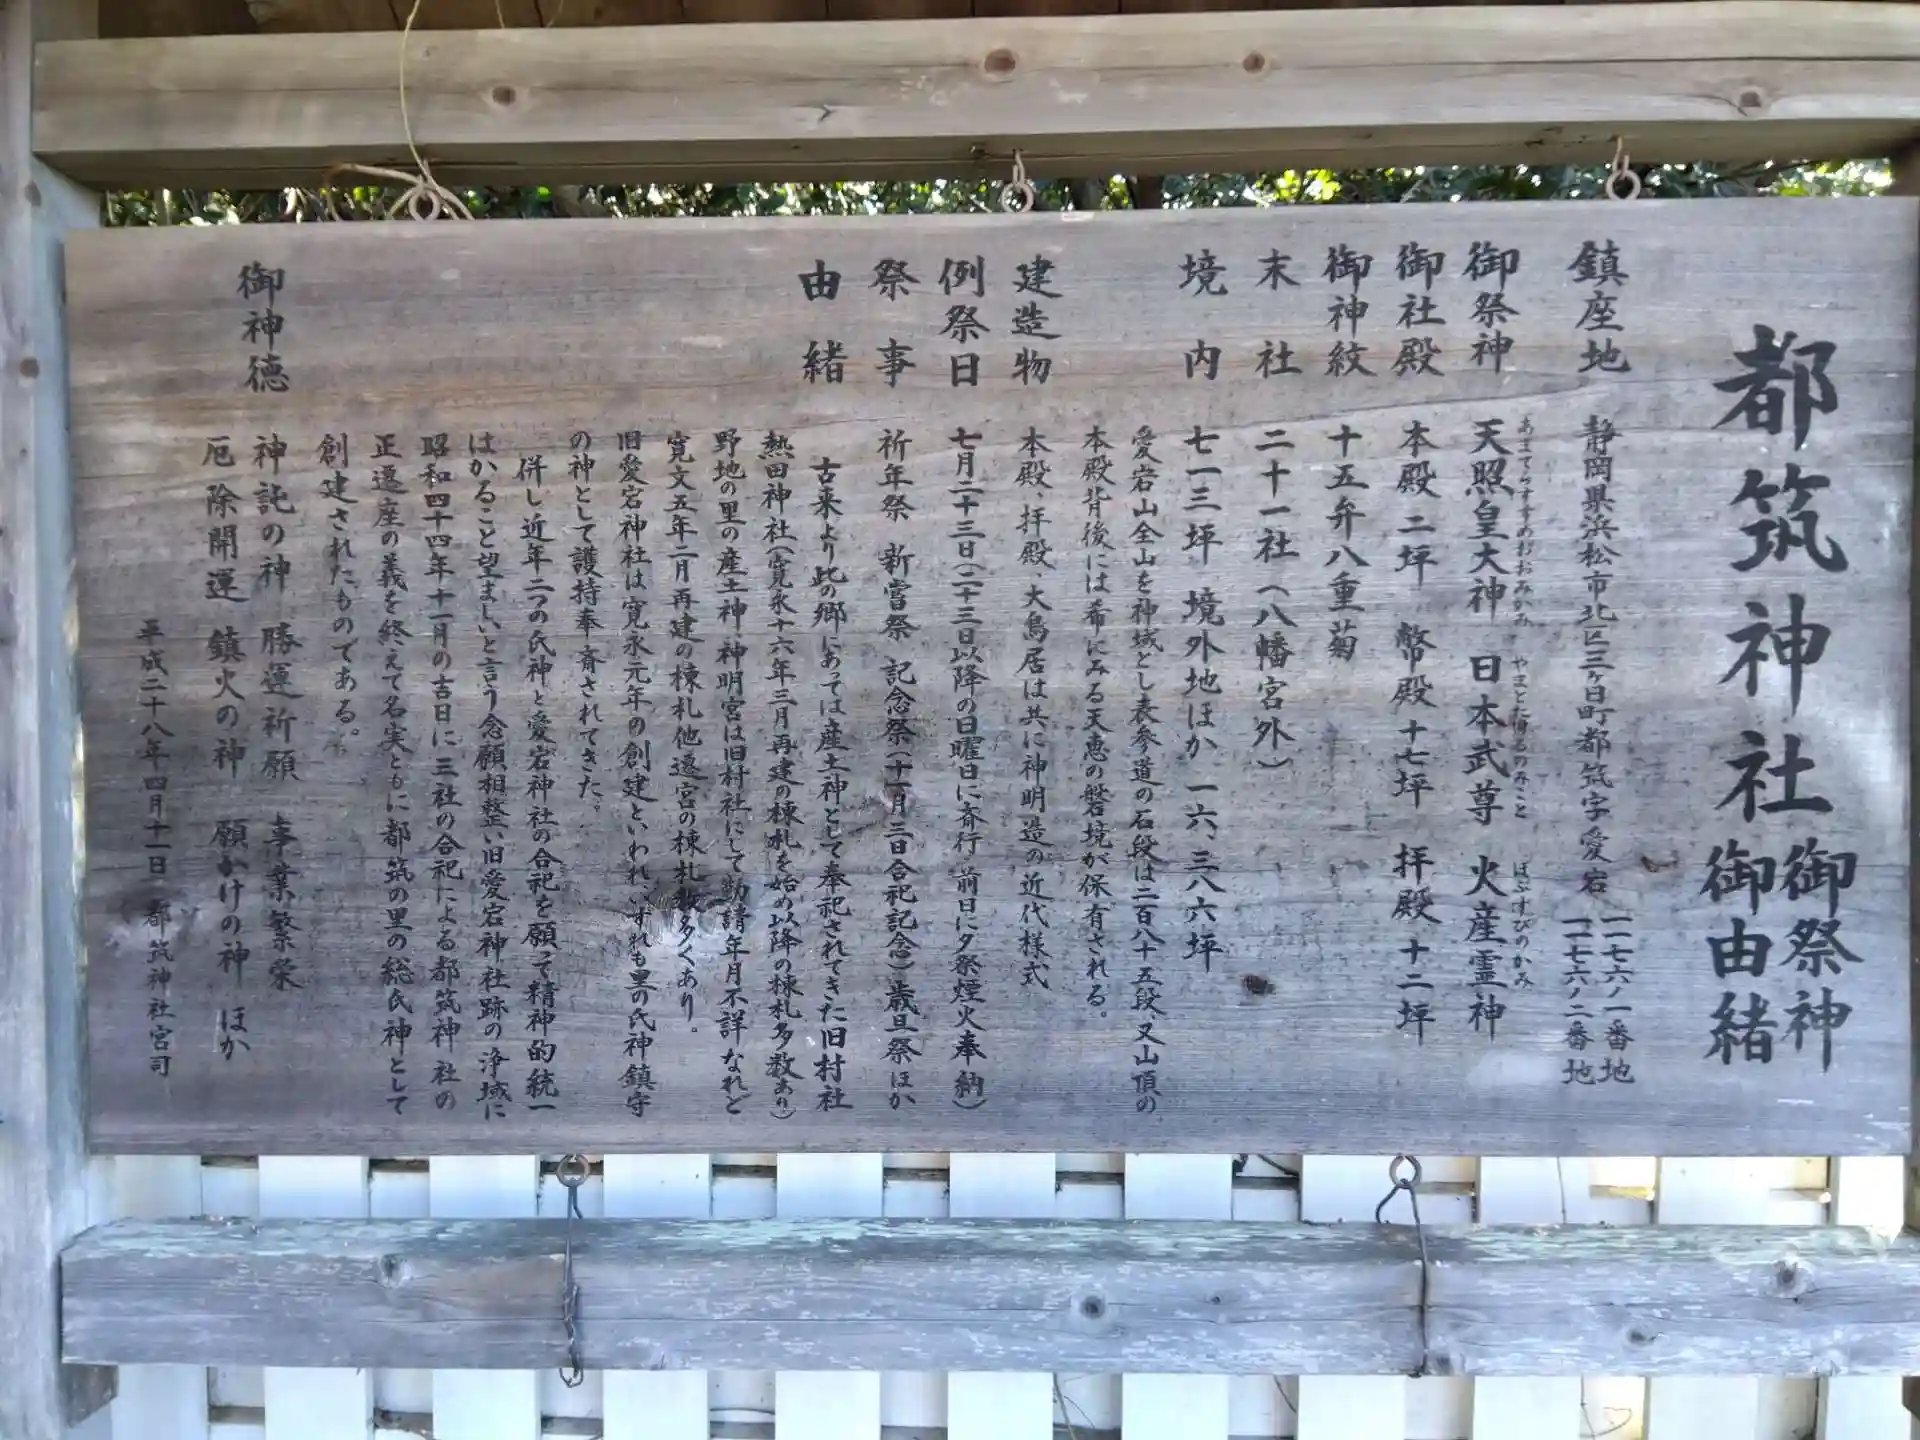 都筑神社御祭神御由緒
鎮座地 静岡県浜松市北区三ケ日町都筑字愛宕 一一七六ノ一番地
一一七六ノ二番地
御祭神 天照皇大神 日本武尊 火産霊神
あまてらすすめおおみかみ やまとたけるのみこと ほぶすびのかみ
御社殿 本殿二坪 幣殿十七坪 拝殿十二坪
御神紋 十五弁八重菊
末社 二十一社(八幡宮外)
境内 七一三坪 境外地ほか 一六、三八六坪
愛宕山全山を神域とし表参道の石段は二百八十五段、又山頂の
本殿背後には希にみる天恵の磐境が保有される。
建造物 本殿、拝殿、大鳥居は共に神明造の近代様式
例祭日 七月二十三日(二十三日以降の日曜日に斉行 前日に夕祭煙火奉納)
祭事 祈年祭 新嘗祭 記念祭(十一月三日合祀記念)歳旦祭ほか
由緒 古来より此の郷にあっては産土神として奉祀されてきた旧村社
熱田神社(寛永十六年三月再建の棟札を始め以降の棟札多数あり)
野地の里の産土神、神明宮は旧村社にして勧請年月不詳なれど
寛文五年二月再建の棟札他遷宮の棟札数多くあり。
旧愛宕神社は寛永元年の創建といわれ、いずれも里の氏神鎮守
の神として護持奉斉されてきた。
併し近年二つの氏神と愛宕神社の合祀を願って精神的統一
はかること望ましいと言う念願相整い旧愛宕神社跡の浄域に
昭和四十四年十一月の吉日に三社の合祀による都筑神社の
正遷座の義を終えて名実ともに都筑の里の総氏神として
創建されたものである。
御神徳 神託の神 勝運祈願 事業繁栄
厄除開運 鎮火の神 願かけの神 ほか
平成二十八年四月十一日 都筑神社宮司